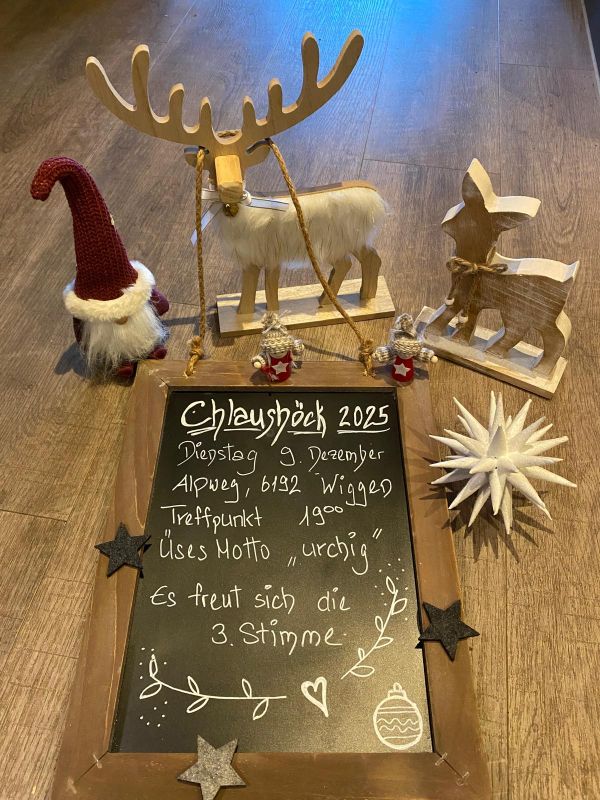 Chlaushöck 2025
Dienstag 9. Dezember
Alpweg, 6192 Wiggen
Treffpunkt 19⁰⁰
Üses Motto „urchig"
Es freut sich die
3. Stimme